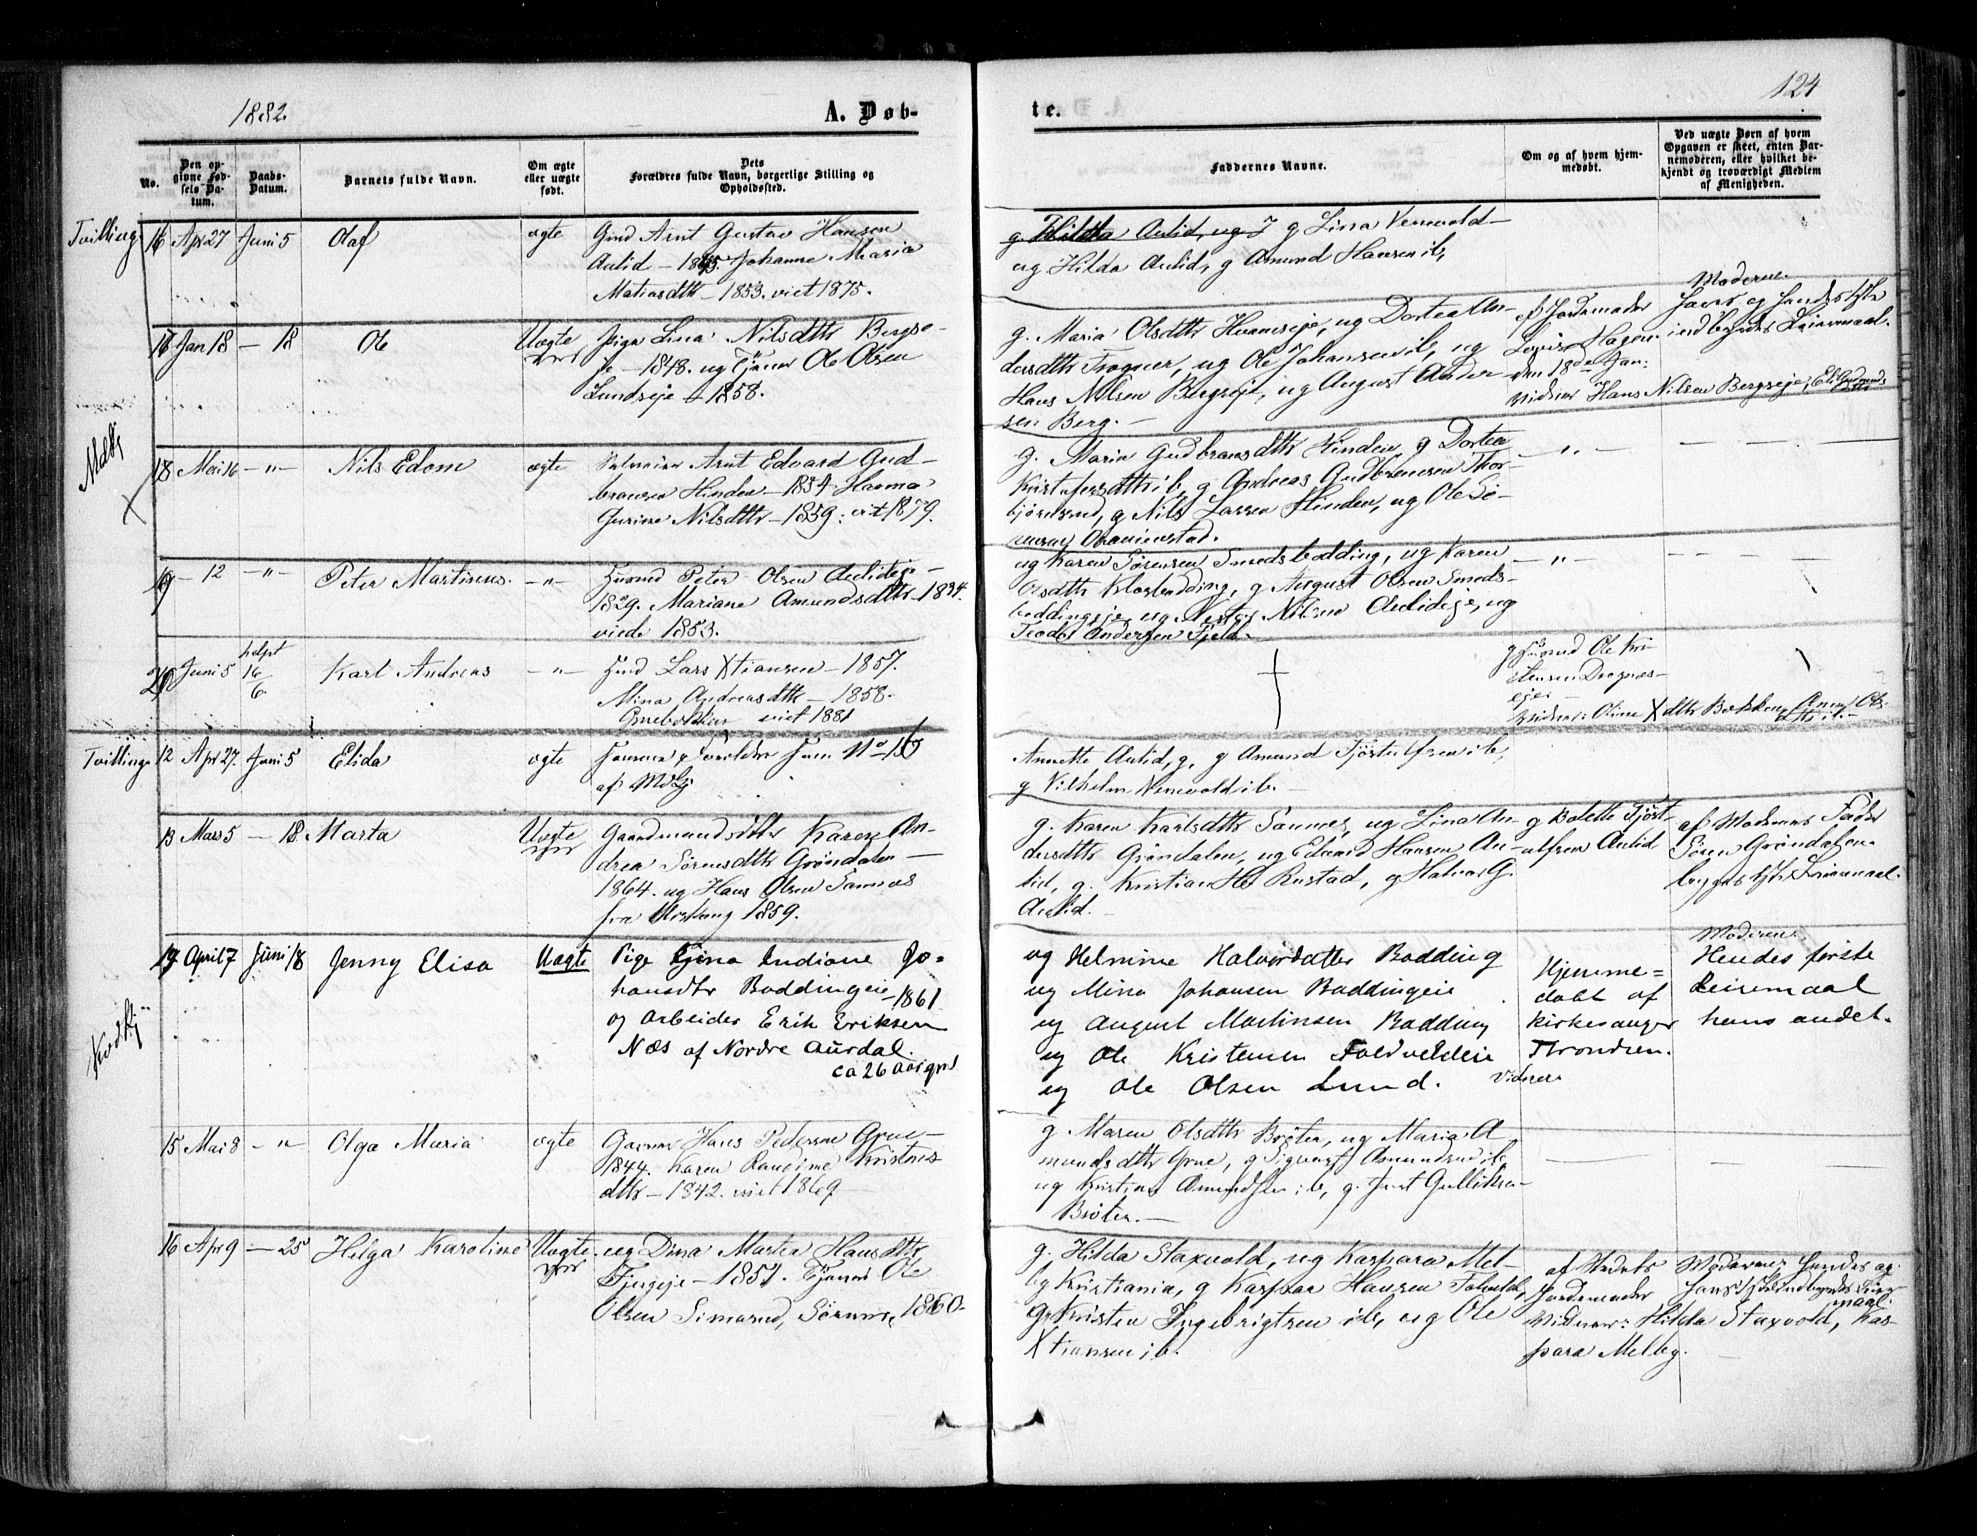 1882
A. Døb-
te.
124
No.
Den op-
givne Fød-
sels Da-
tum.
Daabs-
Datum.
Barnets fulde Navn.
Om ægte
eller uægte
født.
Dets
Forældres fulde Navn, borgerlige Stilling og
Opholdssted.
Faddernes Navne.
Om og af hvem hjem-
medøbt.
Ved uægte Børn af hvem
Opgaven er skeet, enten Bar-
nemoderen, eller hvilket be-
kjendt og troværdigt Medlem
af Menigheden.
Tvilling 16 Apr 27 Juni 5 Olaf ægte Gmd Arnt Gustav Hansen
Aulid – 1845. Johanne Maria
Matiasdtr – 1853. viet 1875.
g. Hilda Aulid, ug g Lina Nenvold –
ug Hilda Aulid, g Amund Hansen ib,
17 Jan 18 – 18 Ole Uægte
Pige Lina Nilsdtr Bergse-
je – 1848. ug Tjener Ole Olsen
Lundseje – 1858.
g. Maria Olsdtr Hvamseje, ug Dortea An-
dersdtr Trogner, ug Ole Johansen ib, ug
Hans Nilsen Bergseje, ug August Ander
sen Berg. –
af Jordemoder
Lovise Hagen
den 18de Jan:
Vidner Hans Nilsen Bergseje,
Moderen
indbyrdes Leiermaal.
18 Mai 16 – " – Nils Edom ægte
Arnt Edvard Gud-
bransen Hinden – 1854 Hanna
Gurine Nilsdtr – 1859. viet 1879.
g. Marie Gudbransdtr Hinden, g Dortea
Kristofersdtr ib, g Andreas Gudbrensen Thor-
bjørnsrud, g Nils Larsen Hinden, ug Ole Sø-
rensen Oranienstad.
– " –
19 – 12 – " – Peter Martinus. – " –
Husmd Peter Olsen Aulideje –
1829. Mariane Amundsdtr – 1834.
viede 1853.
ug Karen Sørensen Smedsbødding, ug Karen
Olsdtr Klosbødding, g August Olsen Smeds-
bøddingseje, ug Nilsen Aulideje, ug
Teodor Andersen Fjeld.
– " –
20 Juni 5 hdpt 16/6 Karl Andreas – " –
Husmd Lars Xtiansen – 1857.
Mina Andreasdtr – 1858.
viet 1881
†
g Husmd Ole Kri
stensen Dragnæs-
ejer –
Vidner: Oline Xdtr Bakken, Anne Ols
Tvilling 12 Apr 27. Juni 5 Elida ægte
Samme Forældre som No 16
af Mdkj
Annette Aulid, g, g Amund Fjøstulfsen ib,
g Vilhelm Nenvold ib. –
13 Mars 5 – 18. Marta Uægte
Gaardmandsdtr Karen An-
drea Sørensdtr Grøndalen –
1864. ug Hans Olsen Samnes
fra Urskoug 1859.
g. Karen Karlsdtr Sannes, ug Lina An-
dersdtr Grøndalen, ug Edvard Hansen Au-
lid, g. Kristian Hs Rustad, g Halvor G.
Aulid. –
g Bolette Fjøst-
ulfsen Aulid
af Moderens Fader
Søren Grøndalen.
begges 1ste Leiermaal.
14 April 7 Juni 18 Jenny Elisa Uægte
Pige Gina Indiane Jo-
hansdtr Buddingeie – 1861
og arbeider Erik Eriksen
Næs af Nordre Aurdal.
ca 26 Aar gml
ug Helmine Halvorsdatter Bødding
ug Mina Johansen Buddingeie
ug August Martinsen Bødding
ug Ole Kristensen Foldveldeie
ug Ole Olsen Lund.
Hjemme-
døbt af
Kirkesanger
Throndsen.
Vidner
Moderen.
Hendes første
Leiermaal
hans andet.
15 Mai 8 – " – Olga Maria ægte
Gaarm Hans Pedersen Grue –
1844. Karen Randine Kristens
dtr – 1842. viet 1869
g. Maren Olsdtr Brøter, ug Maria A
mundsdtr Grue, g Sigvart Amundsen ib,
ug Kristian Amundsen ib, g. Just Gulliksen
Brøter. –
16 Apr 9 – 25 Helga Karoline Uægte
ug Dina Martea Hansdtr
Tugeje – 1857. Tjener Ole
Olsen Simarud, Sørum, 1860 –
g. Hilda Staxvold, ug Kaspara Mel-
by Kristiania, g Kaspar Hansen
g. Kristen Ingebrigtsen ib, ug Ole
Xtiansen ib.
af Stedets
Jordemoder
Vidner: Hilda Staxvold, Kas-
para Melby.
Moderen, hendes og
hans 1ste indbyrdes Leier-
maal.